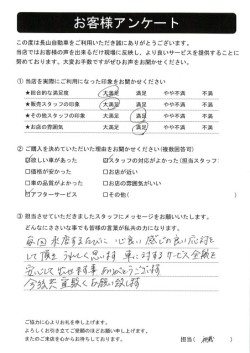 お客様アンケート
この度は長山自動車をご利用いただき誠にありがとうございます。
当店ではお客様の声を出来るだけ現場に反映し、より良いサービスを提供することに
努めます。大変お手数ですがぜひお声をお聞かせください。
① 当店を実際にご利用になった印象をお聞かせください
★総合的な満足度 大満足 満足 やや不満 不満
★販売スタッフの印象 大満足 満足 やや不満 不満
★その他スタッフの印象 大満足 満足 やや不満 不満
★お店の雰囲気 大満足 満足 やや不満 不満
② ご購入を決めていただいた理由をお聞かせください(複数回答可)
欲しい車があった スタッフの対応がよかった(担当スタッフ:
□価格が安かった □お店が近い
□車の品質がよかった □お店の雰囲気がいい
アフターサービス □その他(
③ 担当させていただきましたスタッフにメッセージをお願いいたします。
どんなにささいな事でも皆様の言葉が私共の力になります。
毎回来店するたびに 心良い 感じの良い応対を
して頂き うれしく思います 車に対するサービス全般を
安心して ありがとうございます
今後共 お願い致します
ご協力に心よりお礼を申し上げます。
よろしくお引き立てご愛顧のほどお願い申し上げます。
またのご来店を心よりお待ちしております。
担当(